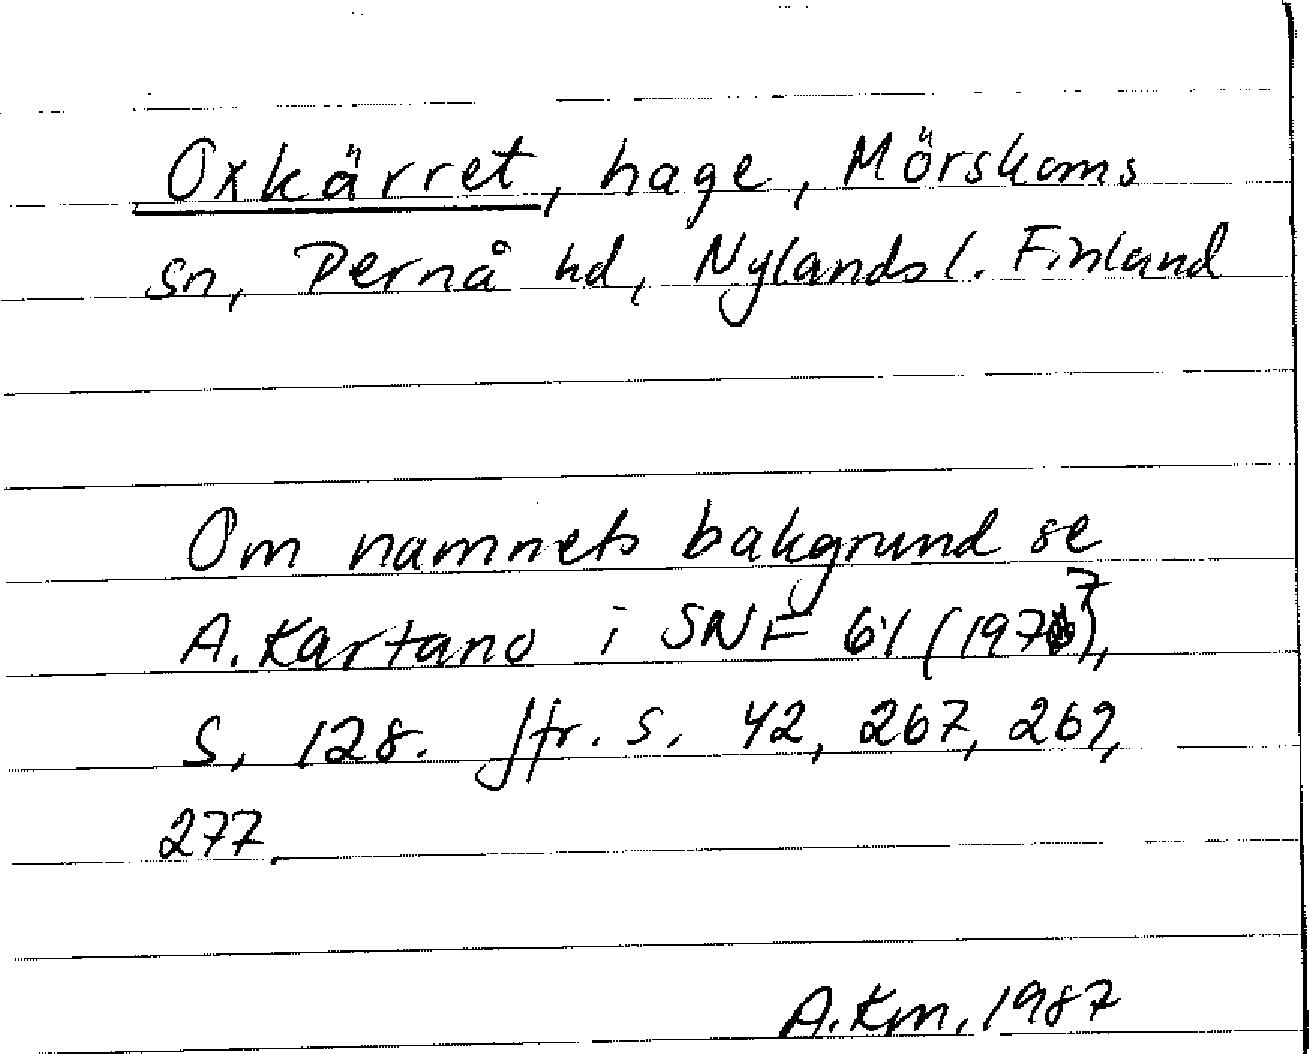 Oxkärret, hage, Mörskoms
sn, Pernå hd, Nylands l. Finland
Om namnets bakgrund se
A. Kartano i SNF 61 (1977),
s, 128. Jfr. s. 42, 267, 269,
277.
A.Km. 1987